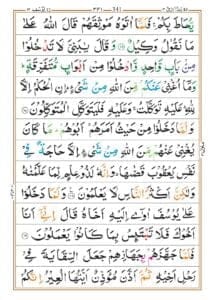 يُّحَاطَ بِكُمْ ۚ فَلَمَّآ اٰتَوْهُ مَوْثِقَهُمْ قَالَ اللّٰهُ عَلٰى
مَا نَقُوْلُ وَكِيْلٌ ۝ وَقَالَ يٰبَنِيَّ لَا تَدْخُلُوْا
مِنْۢ بَابٍ وَّاحِدٍ وَّادْخُلُوْا مِنْ اَبْوَابٍ مُّتَفَرِّقَةٍ ۭ
وَمَآ اُغْنِيْ عَنْكُمْ مِّنَ اللّٰهِ مِنْ شَيْءٍ ۭ اِنِ الْحُكْمُ اِلَّا
لِلّٰهِ ۭ عَلَيْهِ تَوَكَّلْتُ ۚ وَعَلَيْهِ فَلْيَتَوَكَّلِ الْمُتَوَكِّلُوْنَ ۝
وَلَمَّا دَخَلُوْا مِنْ حَيْثُ اَمَرَهُمْ اَبُوْهُمْ ۭ مَا كَانَ
يُغْنِيْ عَنْهُمْ مِّنَ اللّٰهِ مِنْ شَيْءٍ اِلَّا حَاجَةً فِيْ
نَفْسِ يَعْقُوْبَ قَضٰىهَا ۭ وَاِنَّهٗ لَذُوْ عِلْمٍ لِّمَا عَلَّمْنٰهُ
وَلٰكِنَّ اَكْثَرَ النَّاسِ لَا يَعْلَمُوْنَ ۝ وَلَمَّا دَخَلُوْا
عَلٰى يُوْسُفَ اٰوٰٓى اِلَيْهِ اَخَاهُ قَالَ اِنِّيْٓ اَنَا
اَخُوْكَ فَلَا تَبْتَىِٕسْ بِمَا كَانُوْا يَعْمَلُوْنَ ۝
فَلَمَّا جَهَّزَهُمْ بِجَهَازِهِمْ جَعَلَ السِّقَايَةَ فِيْ
رَحْلِ اَخِيْهِ ثُمَّ اَذَّنَ مُؤَذِّنٌ اَيَّتُهَا الْعِيْرُ اِنَّكُمْ